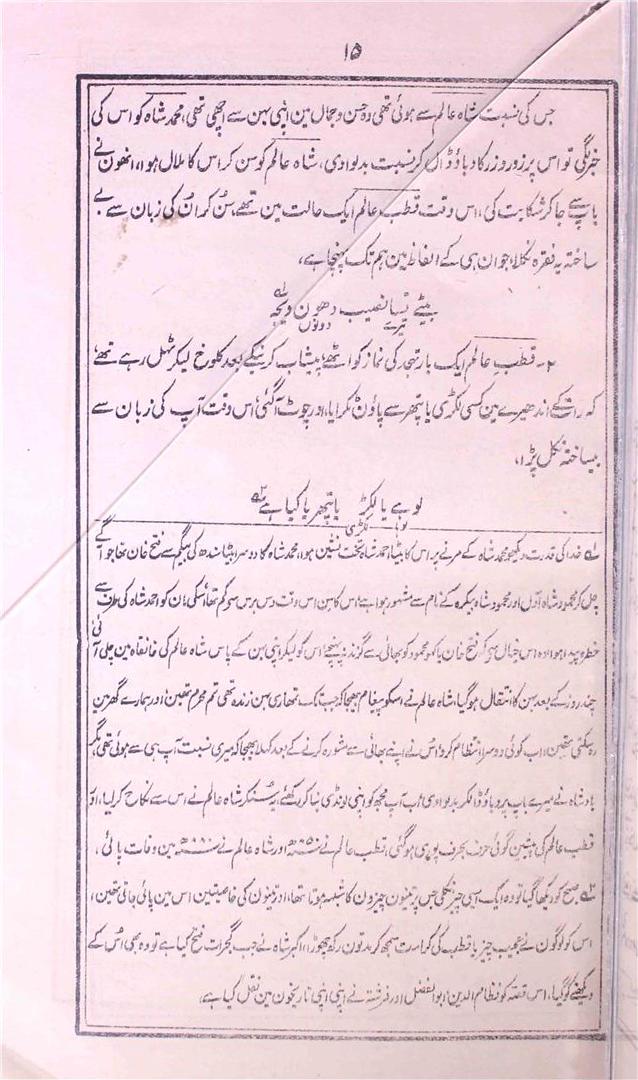 ۱۵
جس کی نسبت شاہ عالم سے ہوئی تھی وہ حسن وجمال مین اپنی بہن سے اچھی تھی، محمد شاہ کو اس کی
خبر لگی تو اس پر زور وزر کا دباؤ ڈال کر نسبت بدلوادی، شاہ عالم کو سن کر اس کا ملال ہوا، اونھون نے
باپ سے جا کر شکایت کی، اس وقت قطب عالم ایک حالت مین تھے، سن کر ان کی زبان سے بے
ساختہ یہ فقرہ نکلا، جو ان ہی کے الفاظ مین ہم تک پہنچا ہے،
بیٹے تسا نصیب دھون ویچہ لہ
تیرے دونون
۲۔ قطب عالم ایک بار تہجد کی نماز کو اٹھے، پیشاب کرنیکے بعد کلوخ لیکر ٹہل رہے تھے
کہ رات کے اندھیرے مین کسی لکڑی یا پتھر سے پاؤن ٹکرایا، اور چوٹ آگئی، اس وقت آپ کی زبان سے
بیساختہ نکل پڑا،
لوہے یا لکڑ یا پتھر یا کیا ہے ۲ہ
لوہا لکڑی
لہ خدا کی قدرت دیکھو محمد شاہ کے مرنے پر اس کا بیٹا احمد شاہ تخت نشین ہوا، محمد شاہ کا دوسرا بیٹا سندھ کی بیگم سے فتح خان تھا جو آگے
چل کر محمود شاہ اول اور محمود شاہ بیگرہ کے نام سے مشہور ہوا ہے، اس کا سن اس وقت دس برس سے کم تھا، اسکی مان کو احمد شاہ کی طرف سے
خطرہ پیدا ہوا وہ اس خیال سے کہ فتح خان یا محمود کو بھائی سے گزند نہ پہنچے، اس کو لیکر اپنی بہن کے پاس شاہ عالم کی خانقاہ مین چلی آئی
چند روز کے بعد بہن کا انتقال ہوگیا، شاہ عالم نے اسکو پیغام بھیجا کہ جب تک تمھاری بہن زندہ تھی تم محرم تھین اور ہمارے گھر مین
رہ سکتی تھین، اب کوئی دوسرا انتظام کرو، اس نے اپنے بھائی سے مشورہ کرنے کے بعد کہلا بھیجا کہ میری نسبت آپ ہی سے ہوئی تھی، مگر
بادشاہ نے میرے باپ پر دباؤ ڈالکر بدلوادی، اب آپ مجھ کو اپنی لونڈی بنا کر رکھئے، یہ سنکر شاہ عالم نے اس سے نکاح کرلیا، اور
قطب عالم کی پیشین گوئی حرف بحرف پوری ہوگئی، قطب عالم نے اور شاہ عالم نے مین وفات پائی،
۲ہ صبح کو دیکھا گیا تو وہ ایک ایسی چیز نکلی جس پر تینون چیزون کا شبہہ ہوتا تھا، اور تینون کی خاصیتین اس مین پائی جاتی تھین،
اس کو لوگون نے عجیب چیز یا قطب کی کرامت سمجھ کر مدتون رکھ چھوڑا، اکبر شاہ نے جب گجرات فتح کیا ہے تو وہ بھی اس کے
دیکھنے کو گیا، اس قصہ کو نظام الدین، ابوالفضل اور فرشتہ نے اپنی اپنی تاریخون مین نقل کیا ہے،